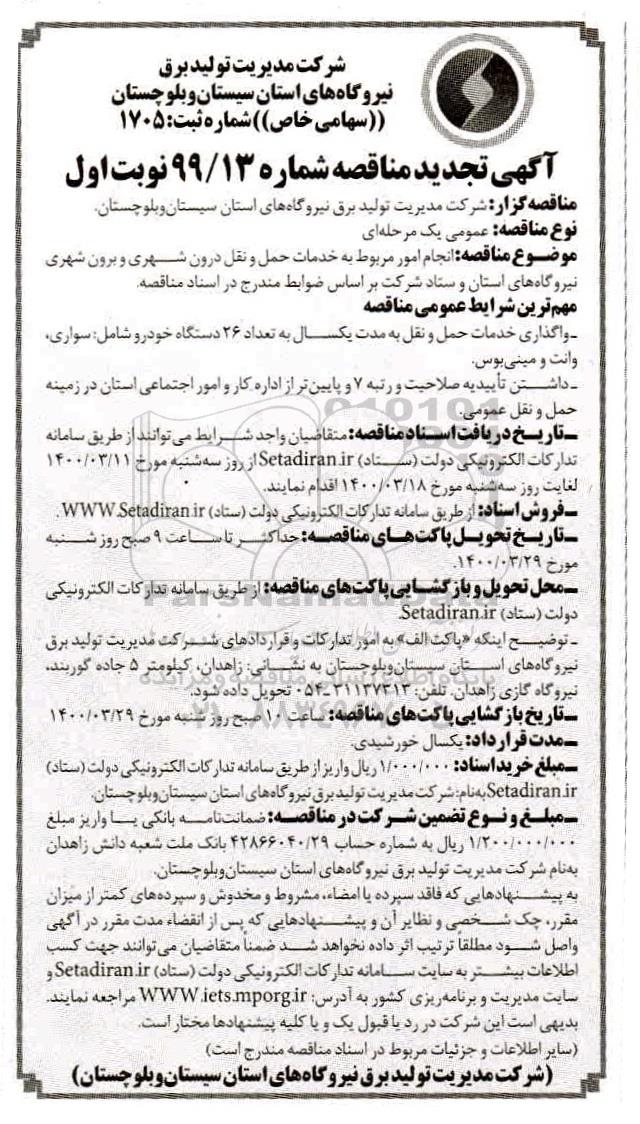 شرکت مدیریت تولید برق
نیروگاه‌های استان سیستان‌وبلوچستان
((سهامی خاص)) شماره ثبت: ۱۷۰۵
آگهی تجدید مناقصه شماره ۹۹/۱۳ نوبت اول
مناقصه‌گزار: شرکت مدیریت تولید برق نیروگاه‌های استان سیستان‌وبلوچستان.
نوع مناقصه: عمومی یک مرحله‌ای
موضوع مناقصه: انجام امور مربوط به خدمات حمل و نقل درون شهری و برون شهری
نیروگاه‌های استان و ستاد شرکت بر اساس ضوابط مندرج در اسناد مناقصه.
مهم‌ترین شرایط عمومی مناقصه
ـ واگذاری خدمات حمل و نقل به مدت یکسال به تعداد ۲۶ دستگاه خودرو شامل: سواری،
وانت و مینی‌بوس.
ـ داشتن تأییدیه صلاحیت و رتبه ۷ و پایین‌تر از اداره کار و امور اجتماعی استان در زمینه
حمل و نقل عمومی.
ـ تاریخ دریافت اسناد مناقصه: متقاضیان واجد شرایط می‌توانند از طریق سامانه
تدارکات الکترونیکی دولت (ستاد) Setadiran.ir از روز سه‌شنبه مورخ ۱۴۰۰/۰۳/۱۱
لغایت روز سه‌شنبه مورخ ۱۴۰۰/۰۳/۱۸ اقدام نمایند.
ـ فروش اسناد: از طریق سامانه تدارکات الکترونیکی دولت (ستاد) WWW.Setadiran.ir .
ـ تاریخ تحویل پاکت‌های مناقصه: حداکثر تا ساعت ۹ صبح روز شنبه
مورخ ۱۴۰۰/۰۳/۲۹.
ـ محل تحویل و بازگشایی پاکت‌های مناقصه: از طریق سامانه تدارکات الکترونیکی
دولت (ستاد) Setadiran.ir.
ـ توضیح اینکه «پاکت الف» به امور تدارکات و قراردادهای شرکت مدیریت تولید برق
نیروگاه‌های استان سیستان‌وبلوچستان به نشانی: زاهدان، کیلومتر ۵ جاده گوربند،
نیروگاه گازی زاهدان. تلفن: ۳۱۱۳۷۳۱۳ـ۰۵۴ تحویل داده شود.
ـ تاریخ بازگشایی پاکت‌های مناقصه: ساعت ۱۰ صبح روز شنبه مورخ ۱۴۰۰/۰۳/۲۹
ـ مدت قرارداد: یکسال خورشیدی.
ـ مبلغ خرید اسناد: ۱/۰۰۰/۰۰۰ ریال واریز از طریق سامانه تدارکات الکترونیکی دولت (ستاد)
Setadiran.ir به‌نام: شرکت مدیریت تولید برق نیروگاه‌های استان سیستان‌وبلوچستان.
ـ مبلغ و نوع تضمین شرکت در مناقصه: ضمانت‌نامه بانکی یا واریز مبلغ
۱/۲۰۰/۰۰۰/۰۰۰ ریال به شماره حساب ۴۲۸۶۶۰۴۰/۲۹ بانک ملت شعبه دانش زاهدان
به‌نام شرکت مدیریت تولید برق نیروگاه‌های استان سیستان‌وبلوچستان.
به پیشنهادهایی که فاقد سپرده یا امضاء، مشروط و مخدوش و سپرده‌های کمتر از میزان
مقرر، چک شخصی و نظایر آن و پیشنهادهایی که پس از انقضاء مدت مقرر در آگهی
واصل شود مطلقا ترتیب اثر داده نخواهد شد ضمنا متقاضیان می‌توانند جهت کسب
اطلاعات بیشتر به سایت سامانه تدارکات الکترونیکی دولت (ستاد) Setadiran.ir و
سایت مدیریت و برنامه‌ریزی کشور به آدرس: WWW.iets.mporg.ir مراجعه نمایند.
بدیهی است این شرکت در رد یا قبول یک و یا کلیه پیشنهادها مختار است.
(سایر اطلاعات و جزئیات مربوط در اسناد مناقصه مندرج است)
(شرکت مدیریت تولید برق نیروگاه‌های استان سیستان‌وبلوچستان)